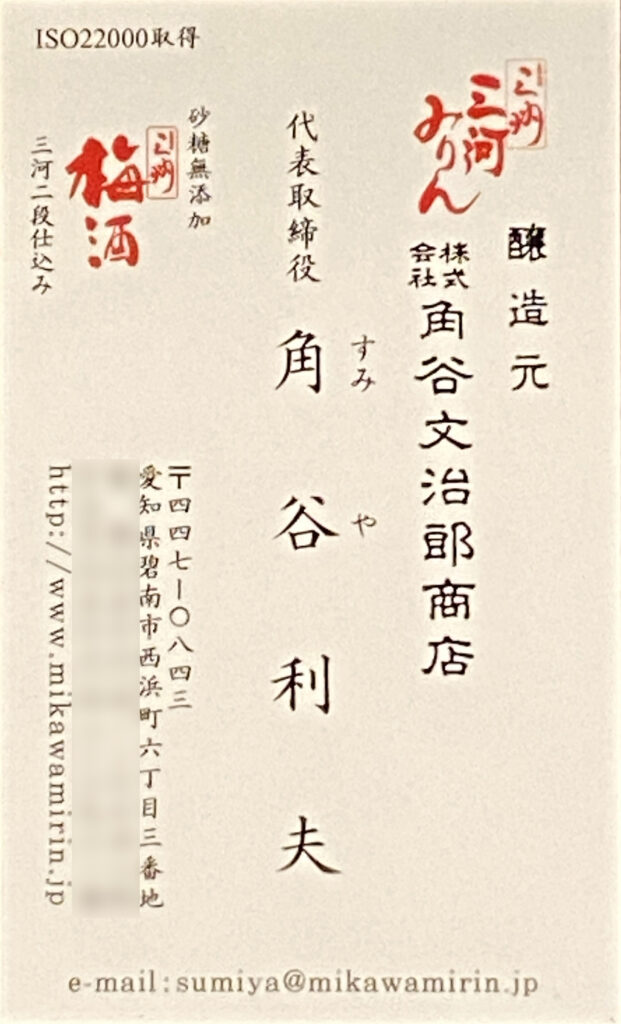 ISO22000取得
三河
みりん
醸造元
株式
会社
角谷文治郎商店
代表取締役
すみや
角谷利夫
砂糖無添加
梅酒
三河二段仕込み
〒四四七―〇八四三
愛知県碧南市西浜町六丁目三番地
http://www.mikawamirin.jp
e-mail:sumiya@mikawamirin.jp